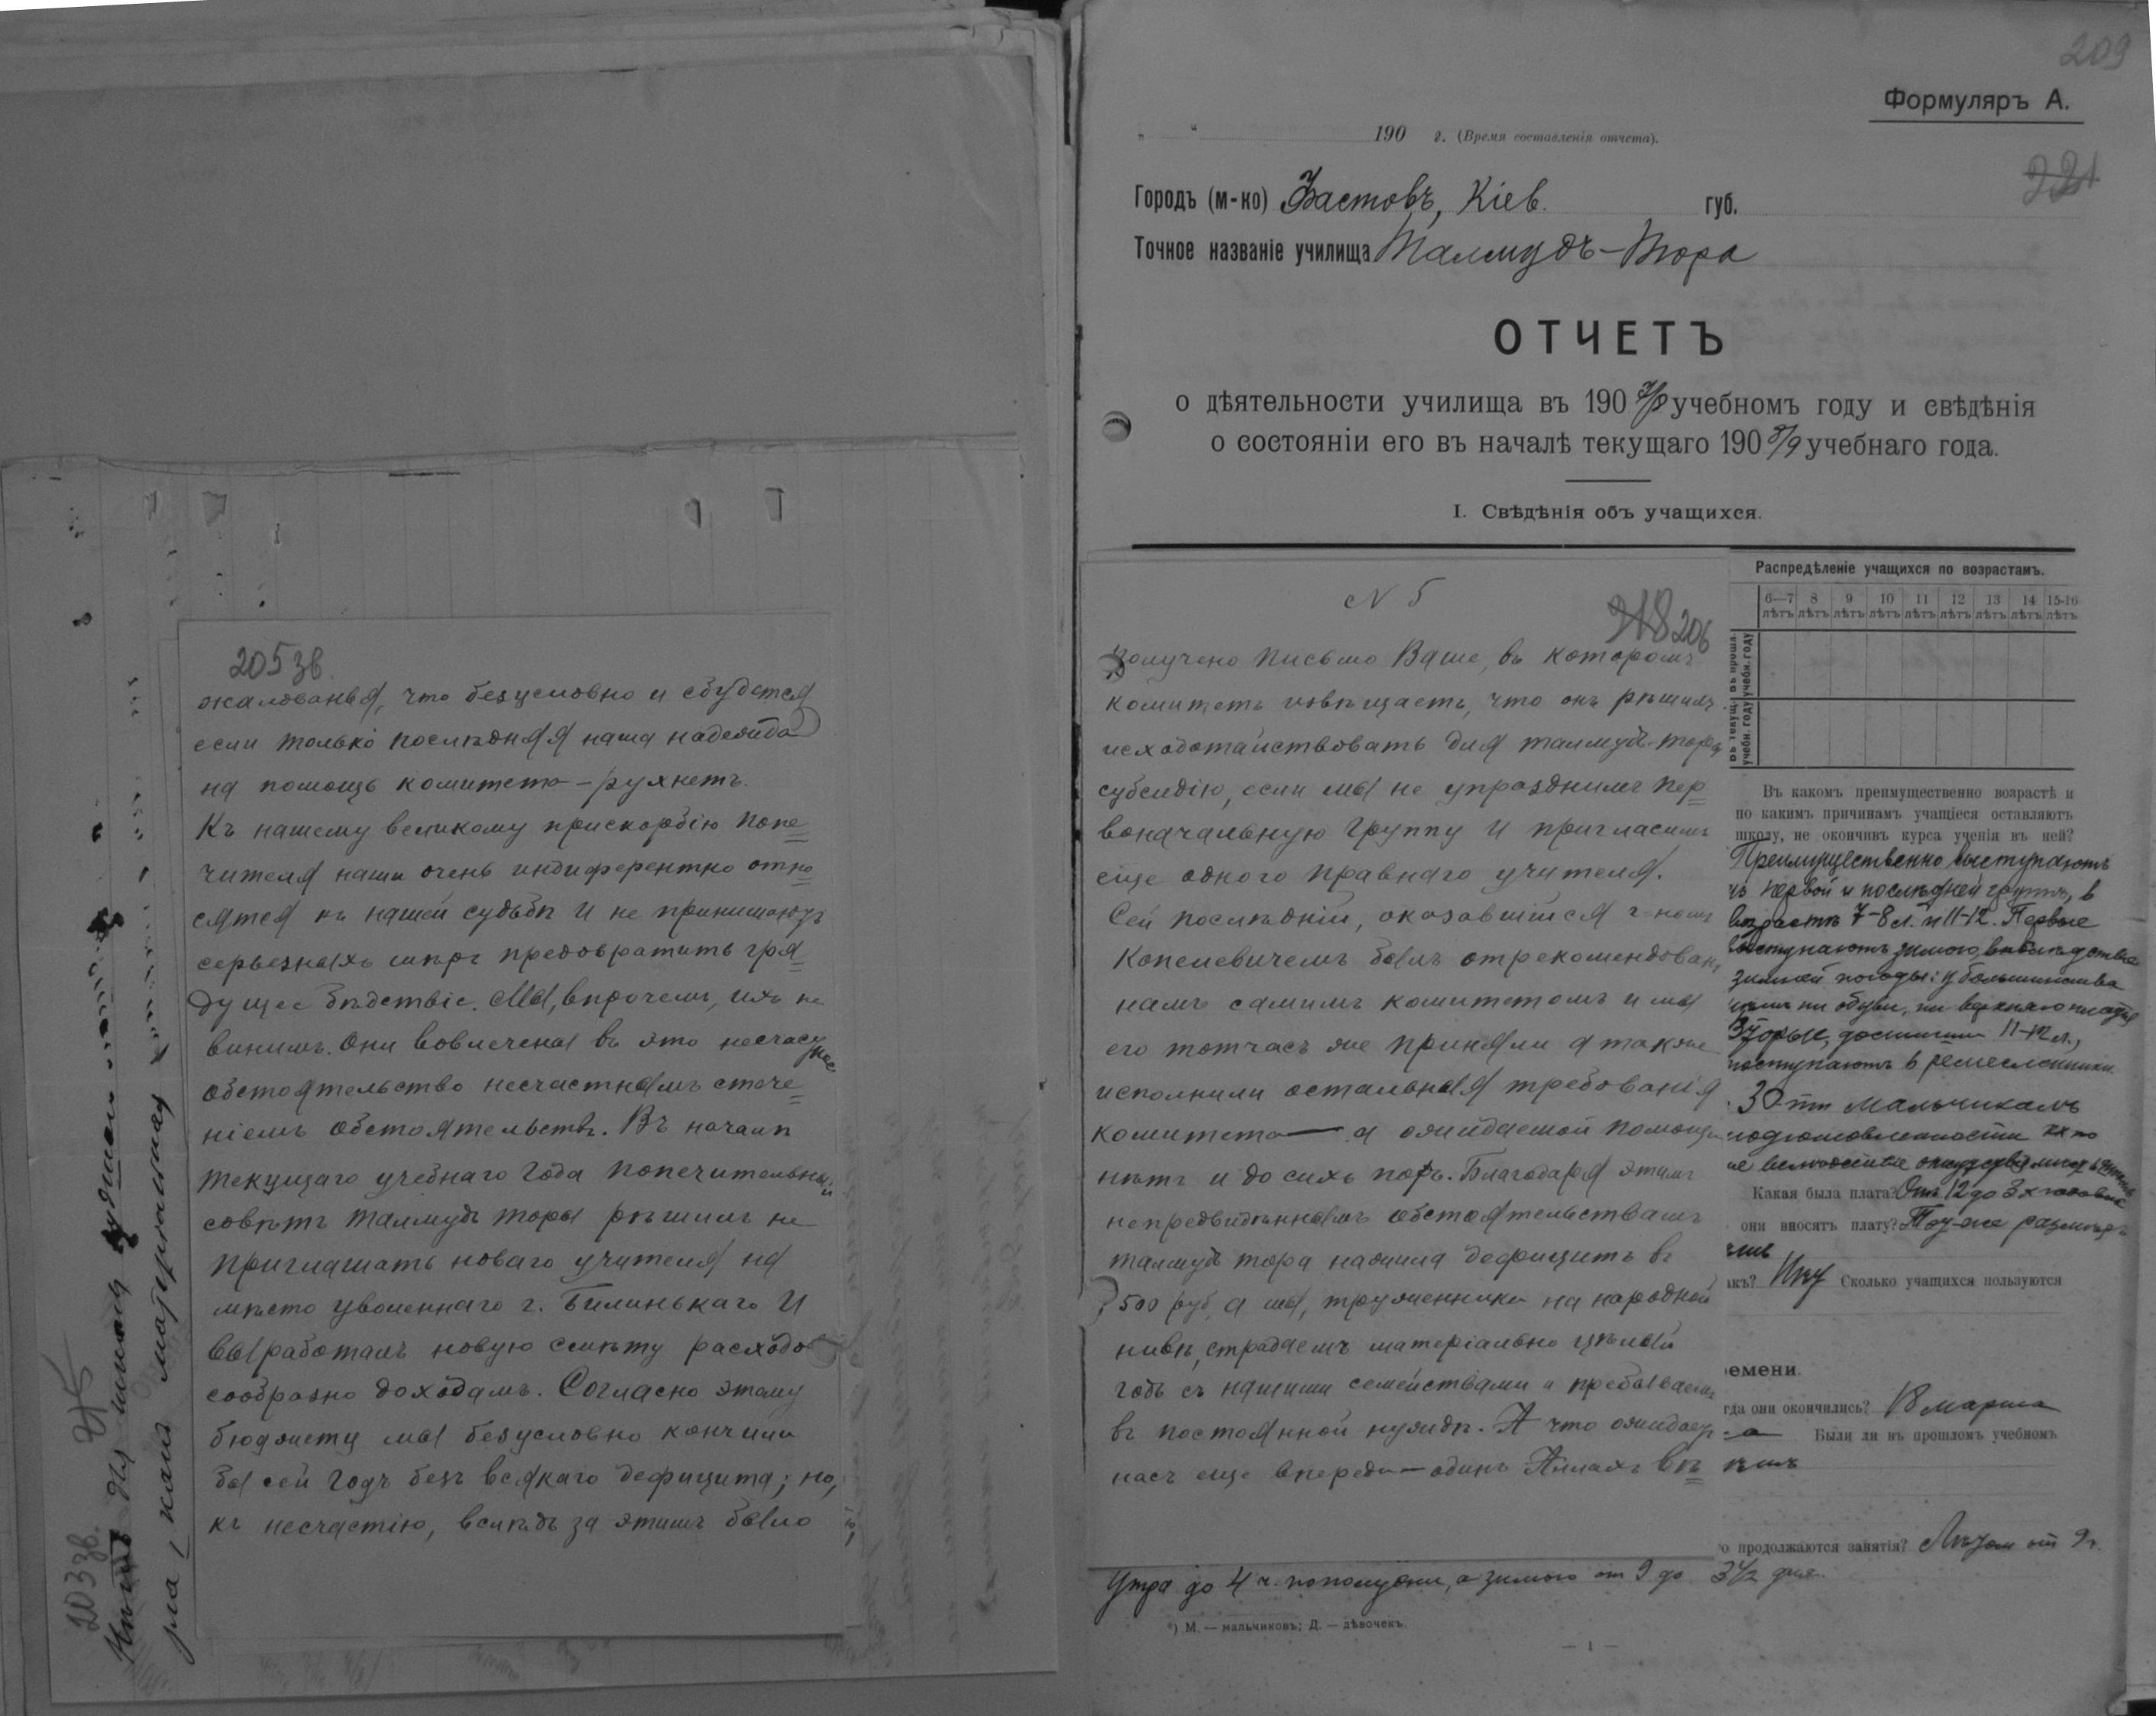 205 зв.
жалованья, что безусловно и сбудется
если только послѣдняя наша надежда
на помощь комитета – рухнетъ.
Къ нашему великому прискорбію попе=
чителя наши очень индиферентно отно=
сятся къ нашей судьбѣ и не принимаютъ
серьезныхъ мѣръ предовратить гря=
дущее бѣдствіе. Мы, впрочемъ, ихъ не
винимъ. Они вовлечены въ это несчастное
обстоятельство несчастнымъ стече=
ніемъ обстоятельствъ. Въ началѣ
текущаго учебнаго года попечительный
совѣтъ талмудъ торы рѣшилъ не
приглашать новаго учителя на
мѣсто уволеннаго г. Билинькаго и
выработалъ новую смѣту расходовъ
сообразно доходамъ. Согласно этому
бюджету мы безусловно кончили
бы сей годъ безъ всякаго дефицита; но,
къ несчастію, вслѣдъ за этимъ было
203 зв.
209
Формуляръ А.
221
„ “ 190 г. (Время составленія отчета).
Городъ (м-ко) Фастовъ, Кіев. губ.
Точное названіе училища Талмудъ-Тора
ОТЧЕТЪ
о дѣятельности училища въ 190 7/8 учебномъ году и свѣдѣнія
о состояніи его въ началѣ текущаго 190 8/9 учебнаго года.
I. Свѣдѣнія объ учащихся.
N 5
218 206
Получено письмо Ваше, въ которомъ
комитетъ извѣщаетъ, что онъ рѣшилъ
исходотайствовать для талмудъ-торы
субсидію, если мы не упразднимъ пер=
воначальную группу и пригласимъ
еще одного правнаго учителя.
Сей послѣдній, оказавшійся г-номъ
Копелевичемъ былъ отрекомендованъ
намъ самимъ комитетомъ и мы
его тотчасъ же приняли а также
исполнили остальныя требованія
комитета — а ожидаемой помощи
нѣтъ и до сихъ поръ. Благодаря этимъ
непредвидѣннымъ обстоятельствамъ
талмудъ тора нажила дефицитъ въ
500 руб, а мы, труженники на народной
нивѣ, страдаемъ матеріально цѣлый
годъ съ нашими семействами и пребываемъ
въ постоянной нуждѣ. А что ожидаетъ
насъ еще впереди — одинъ Аллахъ вѣ=
Распредѣленіе учащихся по возрастамъ.
6—7 8 9 10 11 12 13 14 15-16
лѣтъ лѣтъ лѣтъ лѣтъ лѣтъ лѣтъ лѣтъ лѣтъ лѣтъ
въ прошл. учебн. году
въ текущ. учебн. году
Въ какомъ преимущественно возрастѣ и
по какимъ причинамъ учащіеся оставляютъ
школу, не окончивъ курса ученія въ ней?
Преимущественно выступаютъ
первой и послѣдней группъ, в
возрастѣ 7-8 л. и 11-12. Первые
выступаютъ зимою, вслѣдствіе
зимней погоды: у большинства
ни обуви, ни верхняго платья
Вторые, достигши 11-12 л.,
поступаютъ в ремесленники
30-ти мальчикамъ
Какая была плата? Отъ 12 до 3х
они вносятъ плату? Ту-же
акъ? Нѣтъ Сколько учащихся пользуются
емени.
гда они окончились? 18 марта
Были ли въ прошломъ учебномъ
о продолжаются занятія? Лѣтом от 9 ч.
Утра до 4 ч. пополудни, а зимою от 9 до 3 1/2 дня.
*) М. — мальчиковъ; Д. — дѣвочекъ.
— 1 —